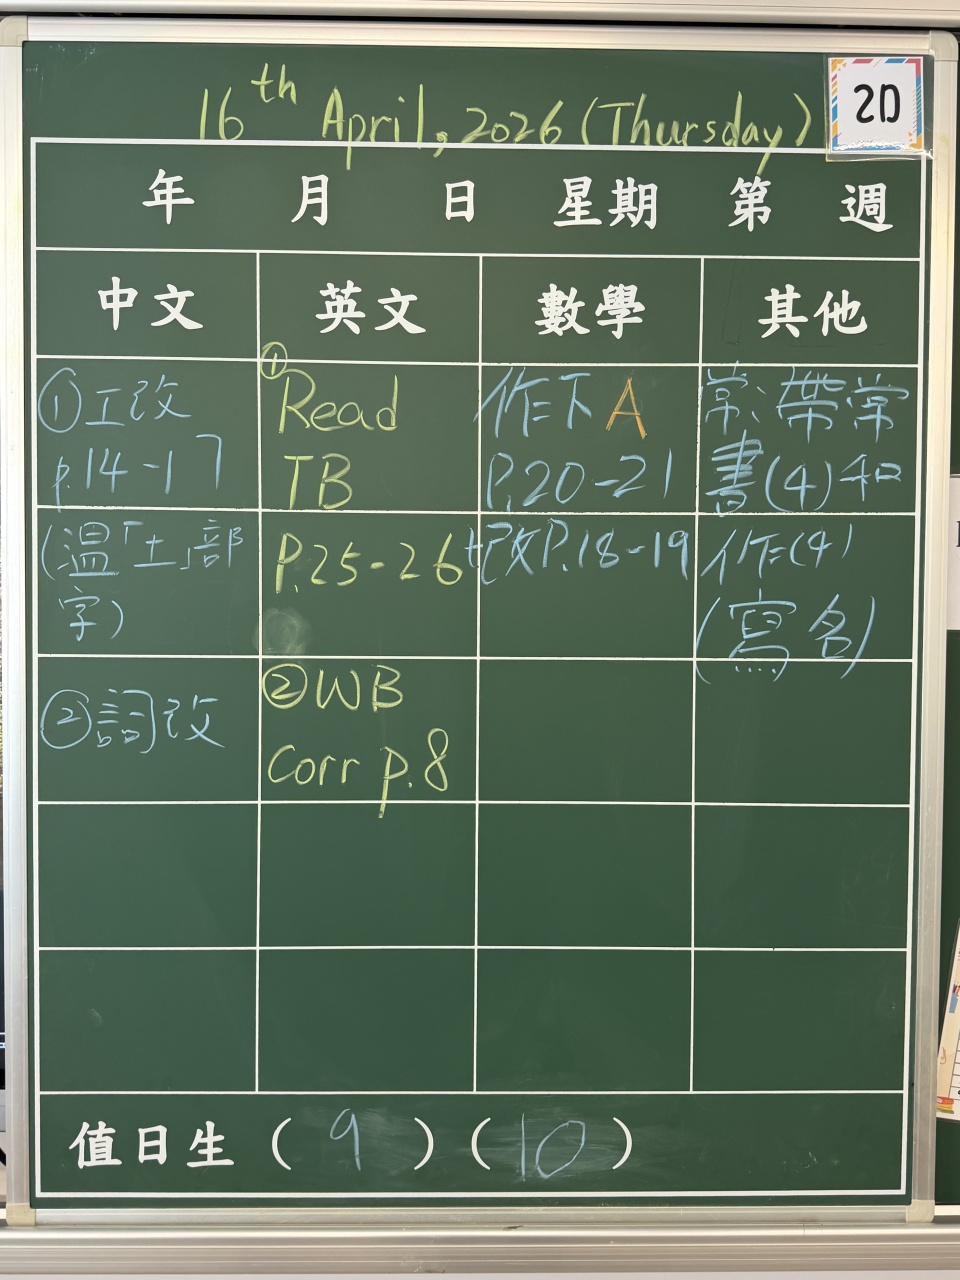 16th April, 2026 (Thursday)
2D
年 月 日 星期 第 週
中文
英文
數學
其他
①工改
p.14-17
(溫「土」部
字)
②詞改
①
Read
TB
P.25-26
②WB
Corr p.8
作下A
P.20-21
改P.18-19
常:帶常
書(4)和
作(4)
(寫名)
值日生 (9) (10)